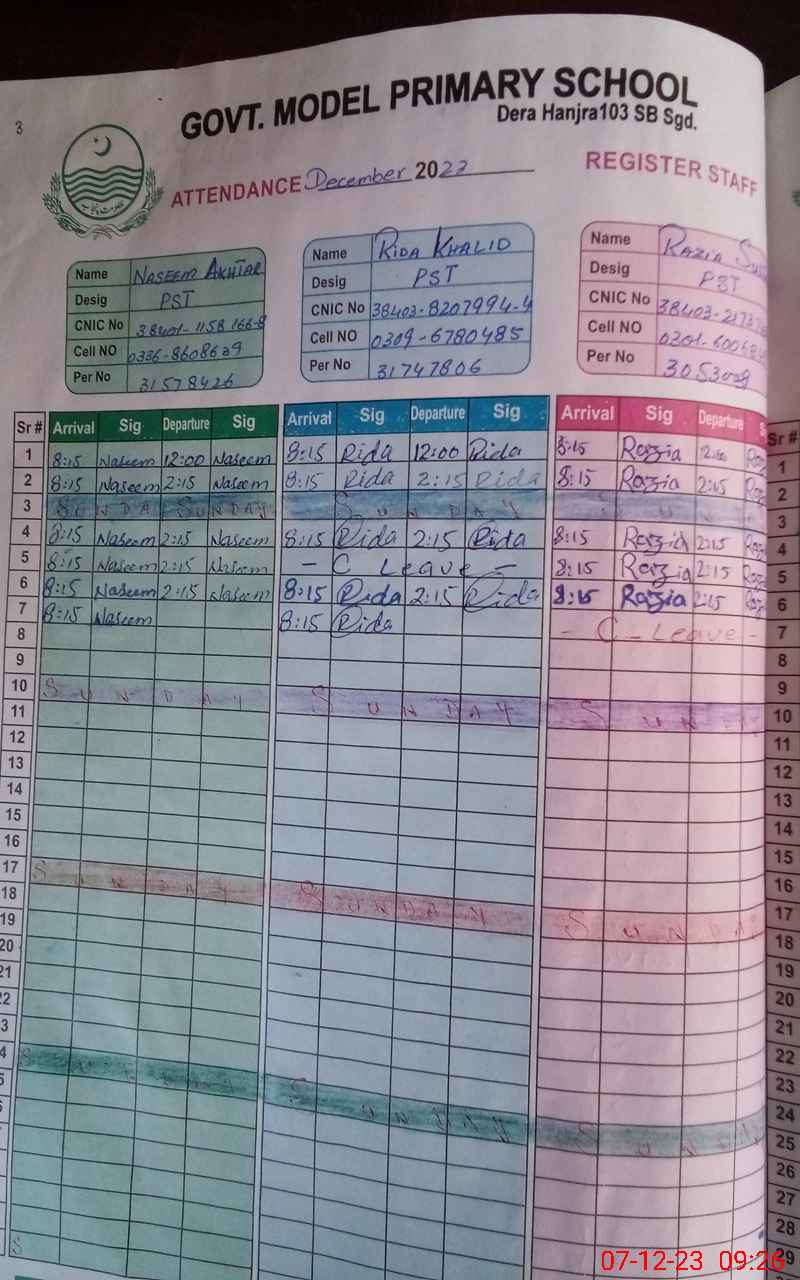 3
GOVT. MODEL PRIMARY SCHOOL
Dera Hanjra103 SB Sgd.
ATTENDANCE December 2022 REGISTER STAFF
Name NASEEM AKHTAR Name RIDA KHALID Name RAZIA
Desig PST Desig PST Desig PST
CNIC No 38401-1158166-8 CNIC No 38403-8207994-4 CNIC No 38403-
Cell NO 0336-8608639 Cell NO 0309-6780485 Cell NO
Per No 31578426 Per No 31747806 Per No
Sr # Arrival Sig Departure Sig Arrival Sig Departure Sig Arrival Sig Departure Sr #
1 8:15 Naseem 12:00 Naseem 8:15 Rida 12:00 Rida 8:15 Razia 12:00 1
2 8:15 Naseem 2:15 Naseem 8:15 Rida 2:15 Rida 8:15 Razia 2:15 2
3 SUNDAY SUNDAY SUNDAY 3
4 8:15 Naseem 2:15 Naseem 8:15 Rida 2:15 Rida 8:15 Razia 2:15 4
5 8:15 Naseem 2:15 Naseem - C Leave - 8:15 Razia 2:15 5
6 8:15 Naseem 2:15 Naseem 8:15 Rida 2:15 Rida 8:15 Razia 2:15 6
7 8:15 Naseem 8:15 Rida - C - Leave - 7
8 8
9 9
10 SUNDAY SUNDAY SUN 10
11 11
12 12
13 13
14 14
15 15
16 16
17 SUNDAY SUNDAY SUNDA 17
18 18
19 19
20 20
21 21
22 22
3 23
4 SUNDAY SUNDAY SUNDA 24
5 25
26
27
28
S 29
07-12-23 09:26